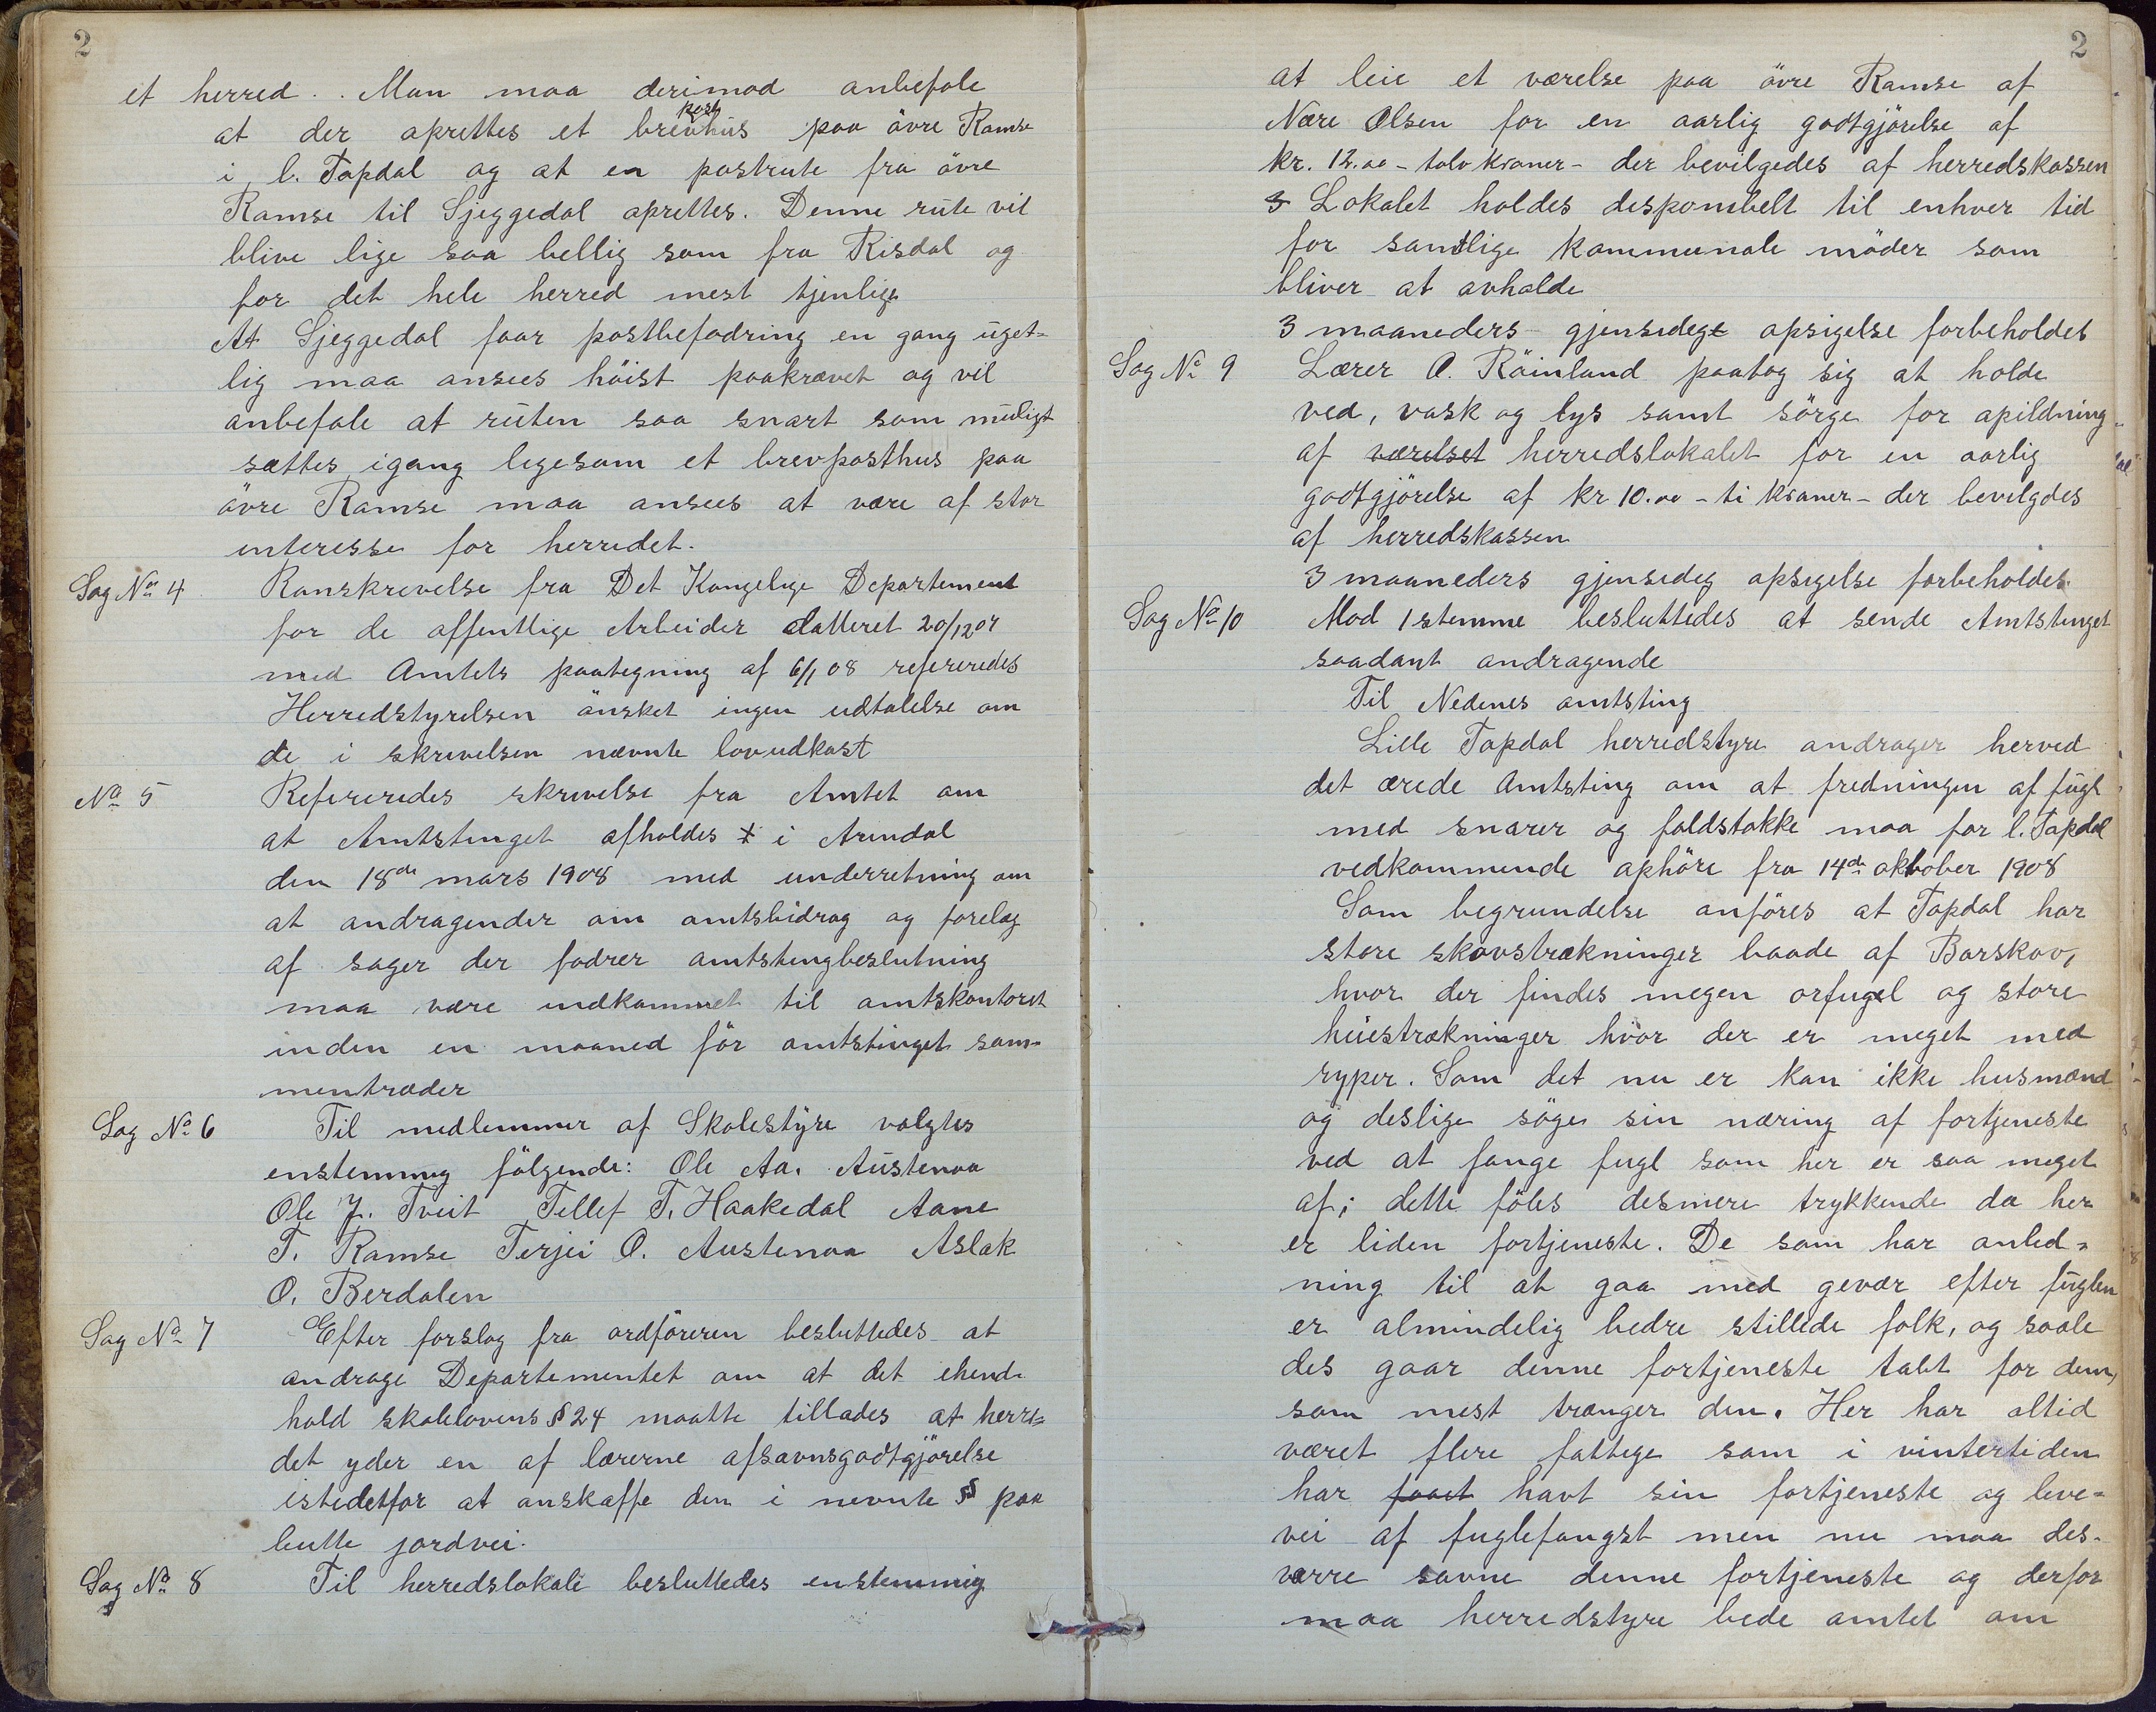 2
et herred.. Man maa derimod anbefale
at der oprettes et brevposthus paa övre Ramse
i l. Topdal og at en postrute fra övre
Ramse til Gjeggedal oprettes. Denne rute vil
blive lige saa bellig som fra Risdal og
for det hele herred mest tjenlige
At Gjeggedal faar postbefodring en gang uget-
lig maa ansees höist paakrævet og vil
anbefale at ruten saa snart som muligt
sættes igang legesom et brevposthus paa
övre Ramse maa ansees at være af stor
interesse for herredet.
Sag No 4 Ranskrevelse fra Det Kongelege Departement
for de offentlige Arbeider datteret 20/12 07
med Amtets paategning af 6/1 08 refereredes
Herredstyrelsen önsket ingen udtalelse om
de i skrivelsen nævnte lovudkast
No 5 Refereredes skrivelse fra Amtet om
at Amtstinget afholdes i Arendal
den 18de mars 1908 med underretning om
at andragender om amtsbidrag og forelæg
af sager der fodrer amtstingbeslutning
maa være indkommet til amtskontoret
inden en maaned för amtstinget sam-
mentræder
Sag No 6 Til medlemmer af Skolestyre valgtes
enstemmig fölgende: Ole Aa. Austenaa
Ole J. Tveit Tellef T. Haakedal Aane
T. Ramse Terjei O. Austenaa Aslak
O. Berdalen
Sag No 7 Efter forslag fra ordföreren besluttedes at
andrage Departementet om at det ehend
hold skolelovens § 24 maatte tillades at herre-
det yder en af lærerne afsavnsgodtgjörelse
istedetfor at anskaffe den i nevnte § paa
butte jordvei.
Sag No 8 Til herredslokale besluttedes enstemmig
2
at leie et værelse paa övre Ramse af
Nære Olsen for en aarlig godtgjörelse af
kr. 12.00 - tolv kroner - der bevilgedes af herredskassen
3 Lokalet holdes desponibelt til enhver tid
for samtlige kommunale möder som
bliver at avholde
3 maaneders gjensedegt opsigelse forbeholdes
Sag No 9 Lærer O. Röinland paatog sig at holde
ved, vask og lys samt sörge for opildning
af værelset herredslokalet for en aarlig
godtgjörelse af kr 10.00 - ti kroner - der bevilgdes
af herredskassen
3 maaneders gjensedeg opsigelse forbeholdes
Sag No 10 Mod 1 stemme besluttedes at sende Amtstinget
saadant andragende
Til Nedenes amtsting
Lille Topdal herredstyre andrager herved
det ærede Amtsting om at fredningen af fugl
med snarer og faldstokke maa for l. Topdal
vedkommende ophöre fra 14de oktober 1908
Som begrundelse anföres at Topdal har
store skovstrækninger baade af Barskov,
hvor der findes megen orfugel og store
heiestrækninger hvor der er meget med
ryper. Som det nu er kan ikke husmænd
og deslige söge sin næring af fortjeneste
ved at fange fugl som her er saa meget
af; dette föles desmere trykkende da her
er liden fortjeneste. De som har anled-
ning til at gaa med gevær efter fuglen
er almindelig bedre stillede folk, og saale
des gaar denne fortjeneste tabt for dem,
som mest trænger den. Her har altid
været flere fattege som i vintertiden
har faaet havt sin fortjeneste og leve-
vei af fuglefangst men nu maa des-
værre savne denne fortjeneste og derfor
maa herredstyre bede amtet om